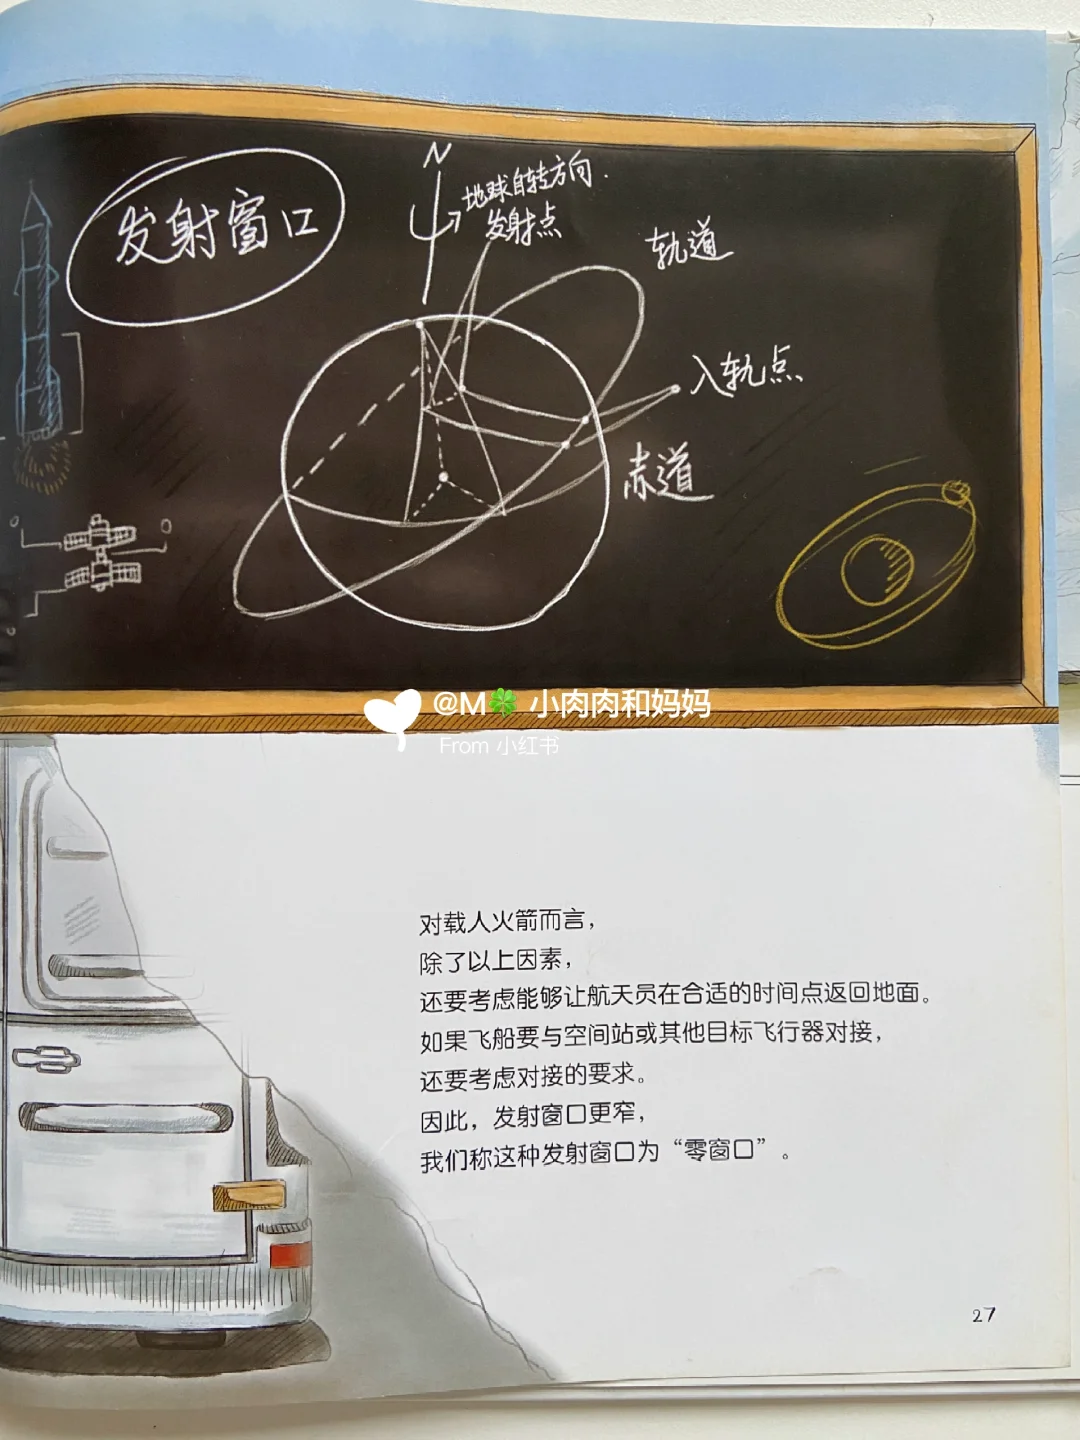 发射窗口
N
地球自转方向.
发射点
轨道
入轨点
赤道
@M🍀 小肉肉和妈妈
From 小红书
对载人火箭而言，
除了以上因素，
还要考虑能够让航天员在合适的时间点返回地面。
如果飞船要与空间站或其他目标飞行器对接，
还要考虑对接的要求。
因此，发射窗口更窄，
我们称这种发射窗口为“零窗口”。
27